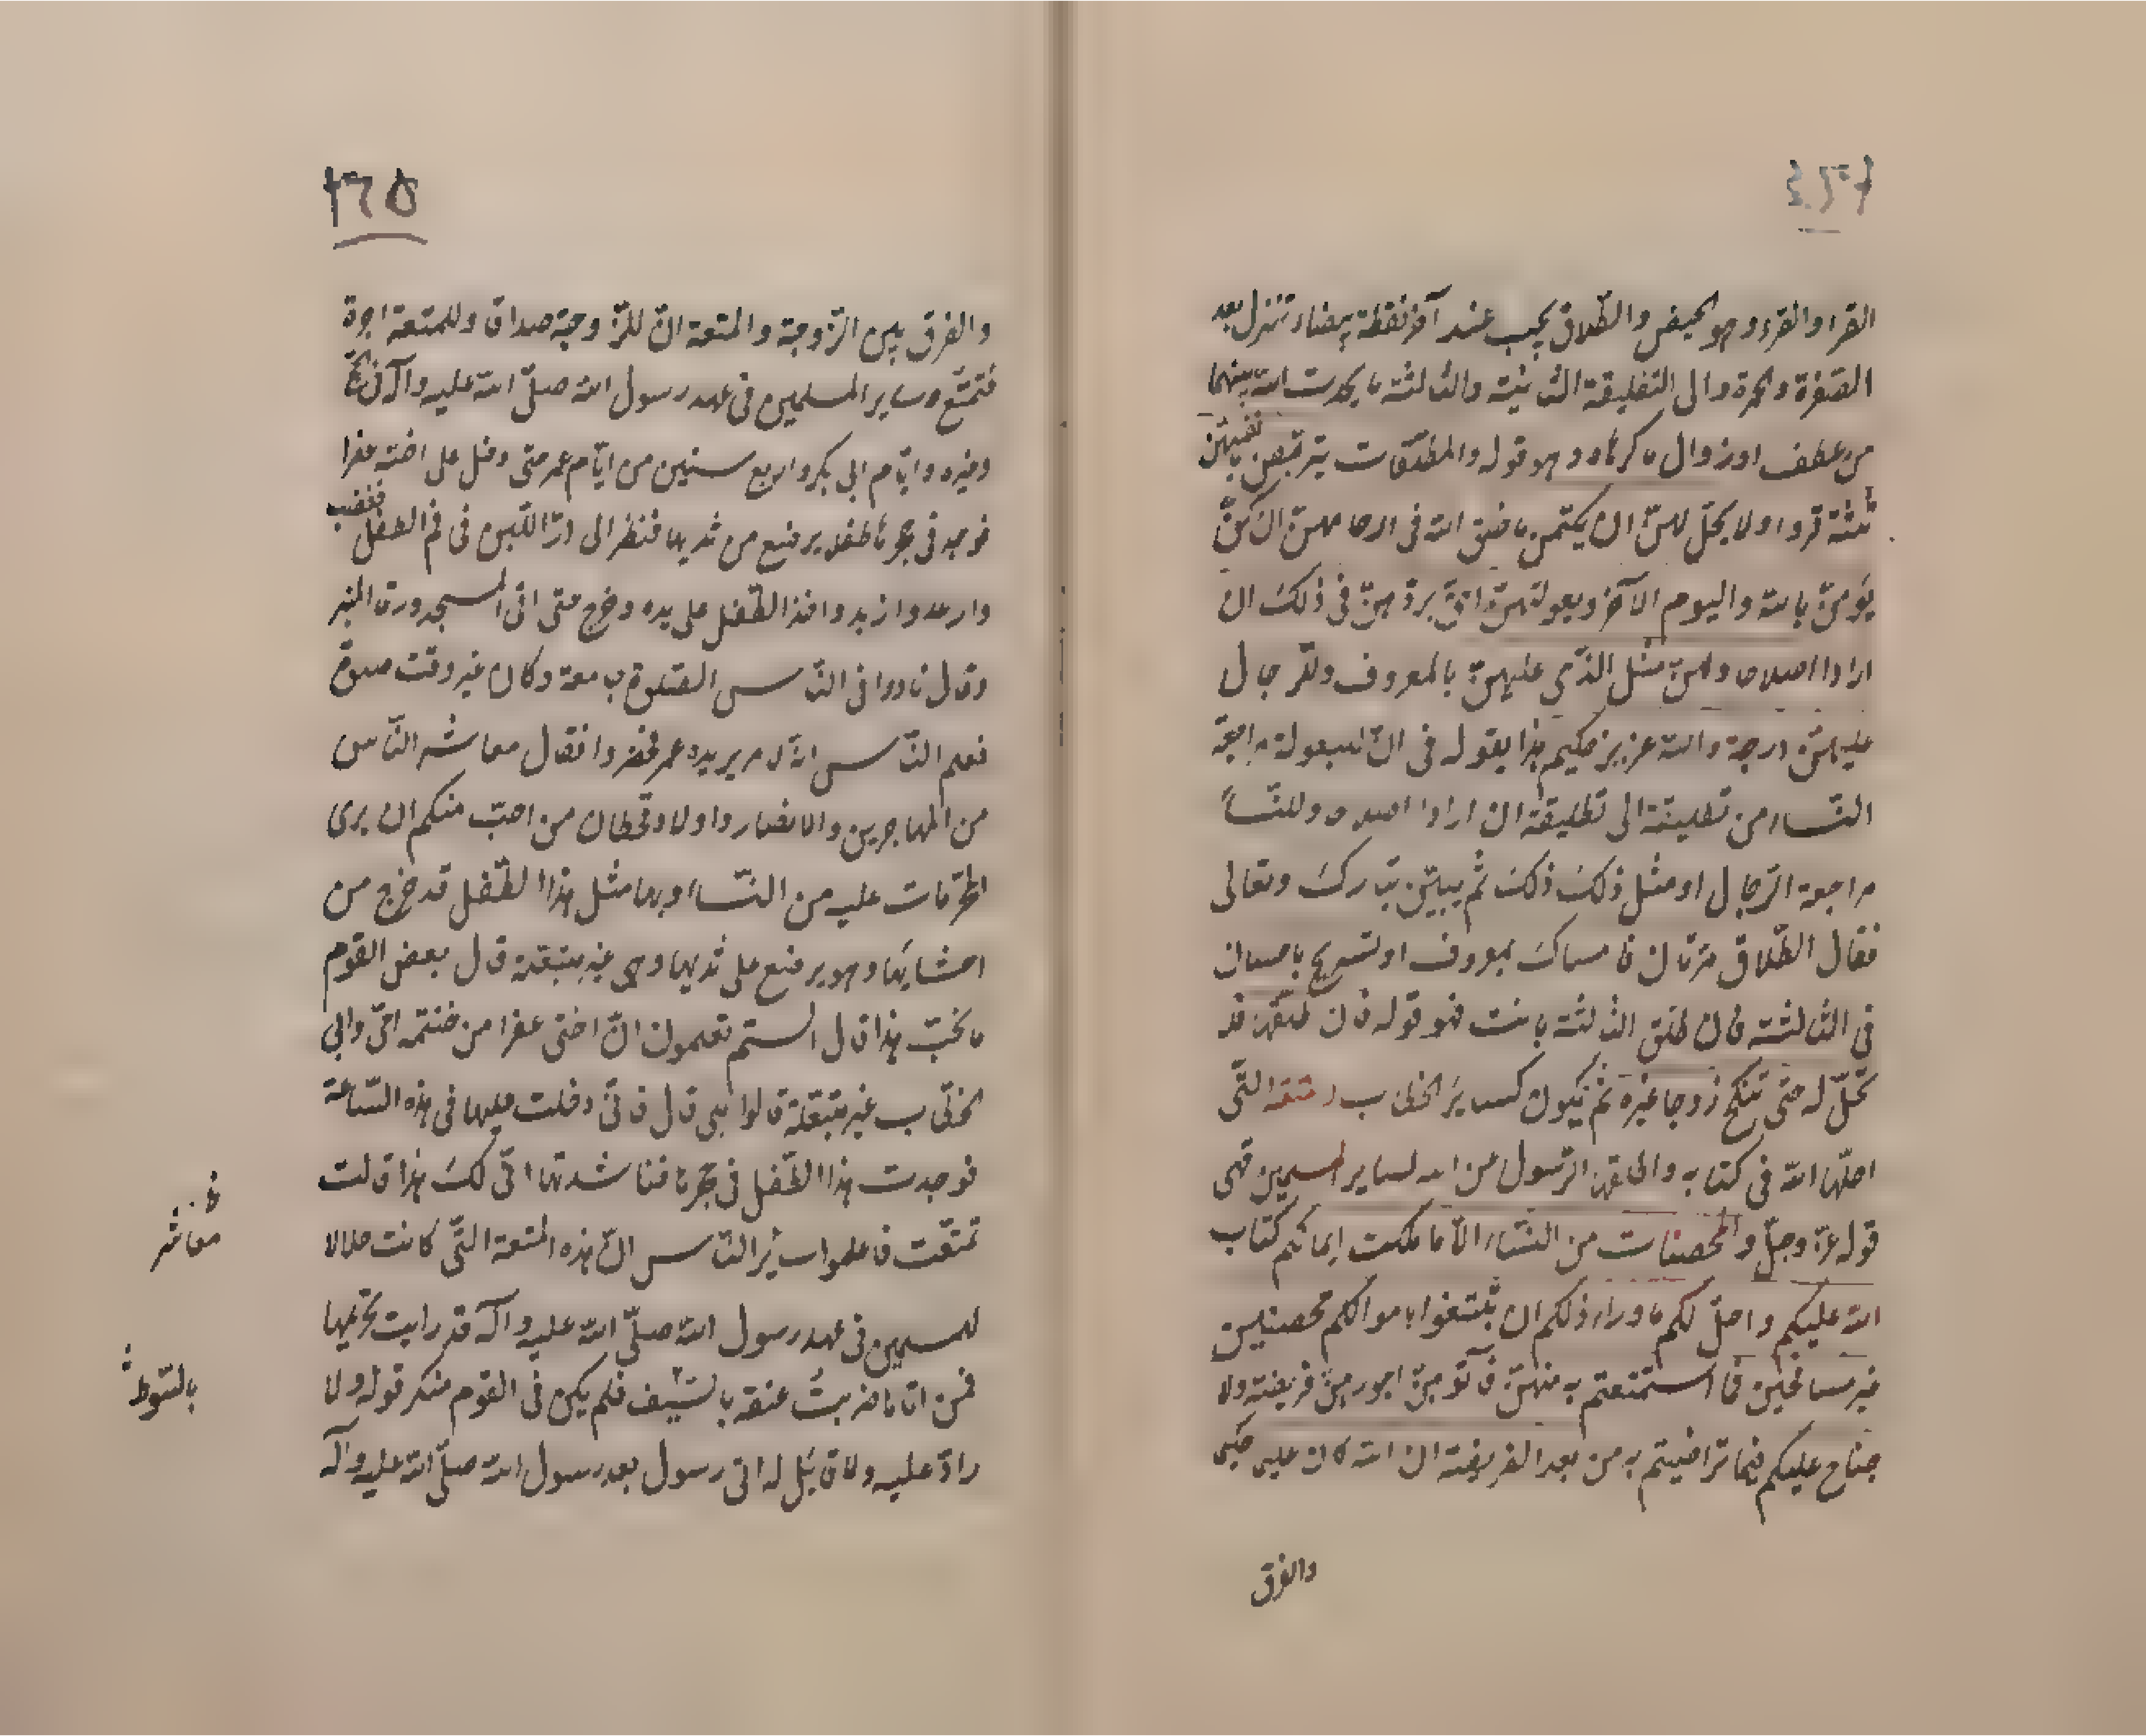 القرا والقرء وهو الحيض والطلاق يجب عند آخر نقطة بيضاء تنزل بعد
الصفرة والحمرة والى التطليقة الثانية والثالثة ما يحدث الله بينهما
من عطف او زوال ما كرهاه وهو قوله والمطلقات يتربصن بانفسهن
ثلثة قروء ولا يحل لهن ان يكتمن ما خلق الله فى ارحامهن ان كن
يؤمن بالله واليوم الآخر وبعولتهن احق بردهن فى ذلك ان
ارادوا اصلاحا ولهن مثل الذى عليهن بالمعروف وللرجال
عليهن درجة والله عزيز حكيم هذا يقوله فى ان للبعولة مراجعة
النساء من تطليقة الى تطليقة ان ارادوا اصلاحا وللنساء
مراجعة الرجال او مثل ذلك ذلك ثم يبين تبارك وتعالى
فقال الطلاق مرتان فامساك بمعروف او تسريح باحسان
فى الثالثة فان طلق الثالثة بانت فهو قوله فان طلقها فلا
تحل له حتى تنكح زوجا غيره ثم يكون كساير الخطاب التى
احلها الله فى كتابه واطلقها الرسول عن الله لساير المسلمين فهى
قوله عز وجل والمحصنات من النساء الا ما ملكت ايمانكم كتاب
الله عليكم واحل لكم ما وراء ذلكم ان تبتغوا باموالكم محصنين
غير مسافحين فما استمتعتم به منهن فآتوهن اجورهن فريضة ولا
جناح عليكم فيما تراضيتم به من بعد الفريضة ان الله كان عليما حكيما
والفرق
١٦٥
والفرق بين الزوجة والمتعة ان للزوجة صداق وللمتعة اجرة
فتمتع ساير المسلمين فى عهد رسول الله صلى الله عليه وآله فى الحج
وغيره وايام ابى بكر واربع سنين من ايام عمر حتى دخل على اخته عفرا
فوجد فى حجرها طفلا يرضع من ثديها فنظر الى درة اللبن فى فم الطفل فغضب
وارعد وازبد واخذ الطفل على يده وخرج حتى اتى المسجد ورقا المنبر
وقال نادوا فى الناس الصلوة جامعة وكان غير وقت صلوة
فعلم الناس انه لامر يريده عمر فحضروا فقال معاشر الناس
من المهاجرين والانصار واولاد قحطان من احب منكم ان يرى
المحرمات عليه من النساء ولها مثل هذا الطفل قد خرج من
احشايها وهو يرضع على ثديها وهى غير متبعلة قال بعض القوم
ما نحب هذا قال الستم تعلمون ان اختى عفرا من خنتمه امى وابى
الخطاب غير متبعلة قالوا بلى قال فانى دخلت عليها فى هذه الساعة
فوجدت هذا الطفل فى حجرها فناشدتها انى لك هذا قالت
تمتعت فاعلموا ساير الناس ان هذه المتعة التى كانت حلالا
للمسلمين فى عهد رسول الله صلى الله عليه وآله قد رايت تحريمها
فمن اتاها ضربت عنقه بالسيف فلم يكن فى القوم منكر قوله ولا
راد عليه ولا قايل له اتى رسول بعد رسول الله صلى الله عليه وآله
معاشر
بالسوط